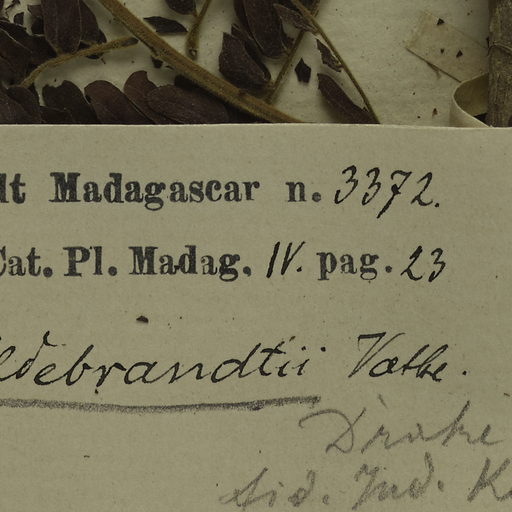 dt Madagascar n. 3372.
Cat. Pl. Madag. IV. pag. 23
ldebrandtii Vatke.
Drake
fid. Ind. K